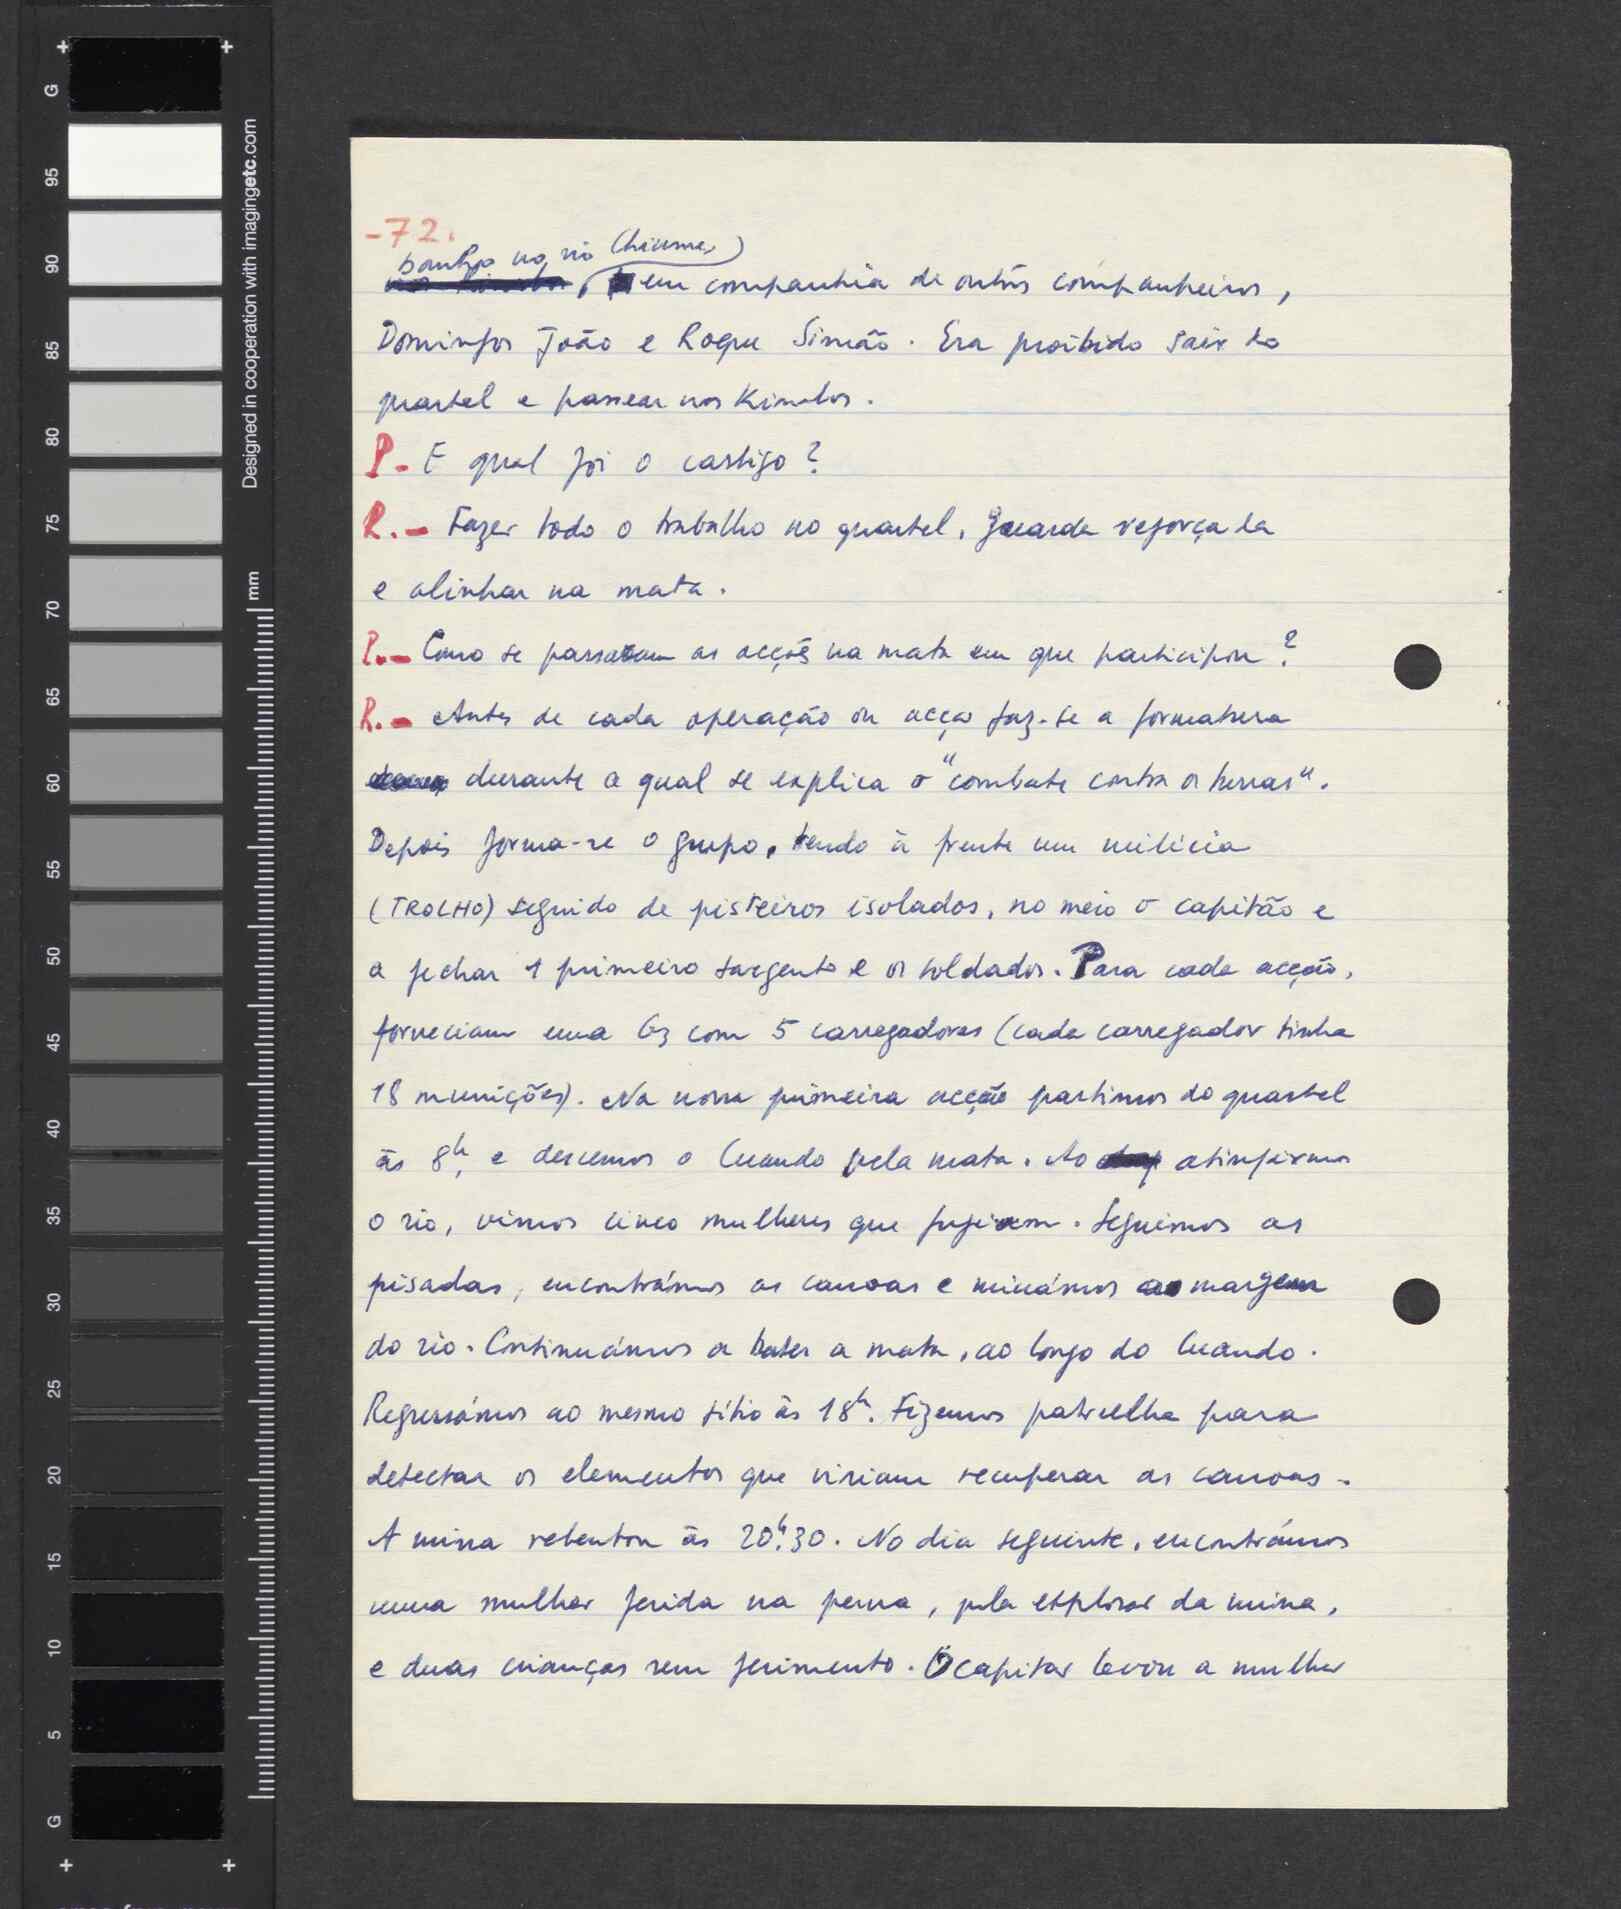 -72.
banho no rio Chiume,
em companhia de outros companheiros,
Domingos João e Roque Simão. Era proibido sair do
quartel e passear nos Kimbos.
P- E qual foi o castigo?
R.- Fazer todo o trabalho no quartel, guarda reforçada
e alinhar na mata.
P.- Como se passavam as acções na mata em que participou?
R.- Antes de cada operação ou acção faz-se a formatura
durante a qual se explica o "combate contra os turras".
Depois forma-se o grupo, tendo à frente um milícia
(TROLHO) seguido de pisteiros isolados, no meio o capitão e
a fechar 1 primeiro sargento e os soldados. Para cada acção,
forneciam uma G3 com 5 carregadores (cada carregador tinha
18 munições). Na nossa primeira acção partimos do quartel
às 8h, e descemos o Cuando pela mata. Ao atingirmos
o rio, vimos cinco mulheres que fugiram. Seguimos as
pisadas, encontrámos as canoas e minámos a margem
do rio. Continuámos a bater a mata, ao longo do Cuando.
Regressámos ao mesmo sítio às 18h. Fizemos patrulha para
detectar os elementos que viriam recuperar as canoas.
A mina rebentou às 20h.30. No dia seguinte, encontrámos
uma mulher ferida na perna, pela explosão da mina,
e duas crianças sem ferimento. O capitão levou a mulher
Designed in cooperation with imagingetc.com
mm
G
95
90
85
80
75
70
65
60
55
50
45
40
35
30
25
20
15
10
5
G